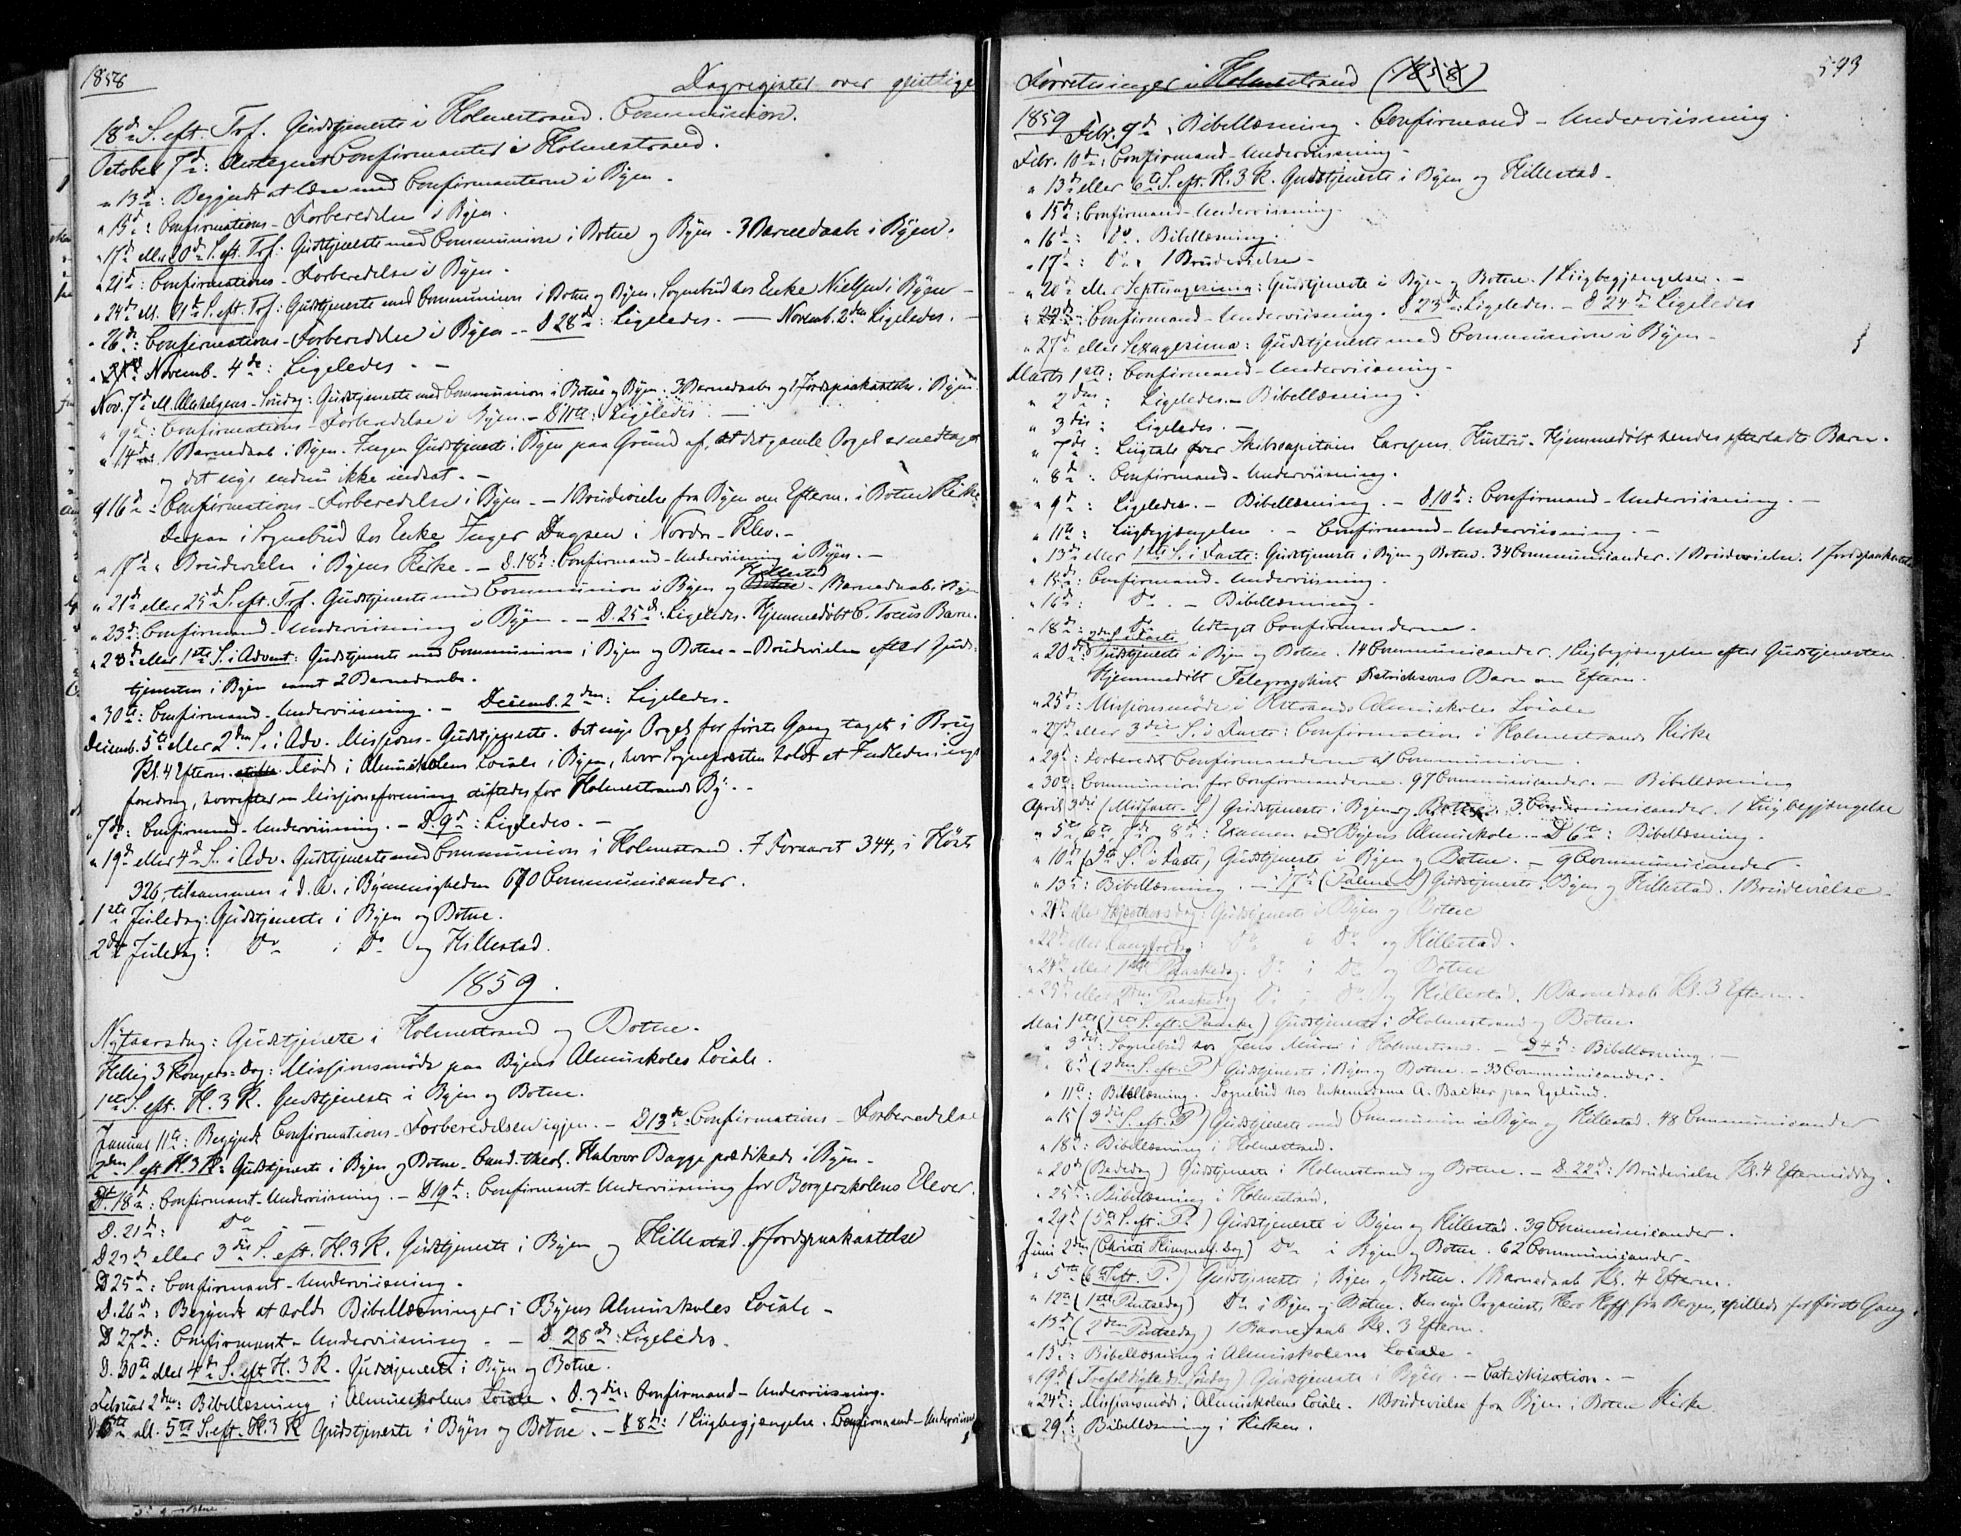 1858 Dagregister over geistlige
18de S. eft. Tref. Gudstjeneste i Holmestrand. Communion.
October 7de: Antegnet Confirmanter i Holmestrand.
" 13de: Begyndt at læse med Confirmanterne i Byen.
" 15de: Confirmations-Forberedelse i Byen.
" 17de eller 20de S. eft. Tref. Gudstjeneste med Communion i Botne og Byen. 3 Barnedaab i Byen.
" 21de: Confirmations-Forberedelse i Byen.
" 24de ell. 21te S. eft. Tref: Gudstjeneste med Communion i Botne og Byen. Sognebud hos Enke Nielsen i Byen
" 26de: Confirmations-Forberedelse i Byen - D 28de: Ligeledes. - Novemb. 2den Ligeledes.
Novemb. 4de: Ligeledes.
Nov. 7de ell. Allehelgens-Søndag: Gudstjeneste med Communion i Botne og Byen. 3 Barnedaab og 1 Jordpaakastelse i Byen
" 9de: Confirmations-Forberedelse i Byen. - D 11te: Ligeledes
" 14de: Barnedaab i Byen. Ingen Gudstjeneste i Byen paa Grund af, at det gamle Orgel er nedtaget
og det nye endnu ikke indsat. -
16de: Confirmations-Forberedelse i Byen. - 1 Brudevielse fra Byen om Efterm. i Botne Kirke
Derpaa i Sognebud hos Enke Inger Dagsen i Nordr. Klev. -
" 17de Brudevielse i Byens Kirke. - D. 18de: Confirmand-Underviisning i Byen. -
" 21de eller 25de S. eft. Tref. Gudstjeneste med Communion i Byen og Hillestad. 1 Barnedaab i Byen
" 23de: Confirmand-Underviisning i Byen. - D. 25de: Ligeledes. Hjemmedøbt C. Barn.
" 28de eller 1ste S. i Advent: Gudstjeneste med Communion i Byen og Botne - Brudevielse efter Guds-
tjenesten i Byen samt 2 Barnedaab.
" 30te: Confirmand-Underviisning. - Decemb. 2den: Ligeledes.
Decemb. 5te eller 2den S. i Adv. Missions-Gudstjeneste. Det nye Orgel for første Gang taget i Brug
Kl. 4 Efterm. Møde i Almueskolens Locale i Byen, hvor Sognepresten holdt et Indlednings-
foredrag, hvorefter en Missionsforening stiftedes for Holmestrands By. -
" 7de: Confirmand-Underviisning. - D. 9de: Ligeledes. -
" 19de eller 4de S. i Adv. Gudstjeneste med Communion i Holmestrand. I Foraaret 344, i Høst
326, tilsammen i d. A. i Bymenigheden 670 Communicander.
1ste Juledag: Gudstjeneste i Byen og Botne.
2den Juledag: Do i Do og Hillestad.
1859.
Nytaarsdag: Gudstjeneste i Holmestrand og Botne.
Hellig 3 Kongers-Dag: Missionsmøde paa Byens Almueskoles Locale.
1ste S. eft. H. 3 K. Gudstjeneste i Byen og Botne.
Januar 11te: Begyndt Confirmations-Forberedelsen igjen. - D 13de: Confirmations-Forberedelse
2den S. eft. H. 3 K: Gudstjeneste i Byen og Botne. Cand. theol. Halvor Bagge prædikede i Byen -
D. 18de: Confirmant-Underviisning. - D 19de: Confirmant-Underviisning for Borgerskolens Elever.
D. 21de: Do
D 23de eller 3die S. eft. H. 3 K. Gudstjeneste i Byen og Hillestad. 1 Jordpaakastelse
D 25de: Confirmant-Underviisning.
D. 26de: Begyndt at holde Bibellæsninger i Byens Almueskoles Locale -
D 27de: Confirmant-Underviisning. - D. 28de: Ligeledes.
D. 30te eller 4de S. eft. H. 3 K. Gudstjeneste i Byen og Botne.
Februar 2den: Bibellæsning i Almueskolens Locale. D. 3die: Confirmand-Underviisning.
6te ell. 5te S. eft. H. 3 K Gudstjeneste i Byen og Botne. - D 8de: 1 Liigbegjængelse. Confirmand-Underviisn
Forretninger i Holmestrand (1858) 593
1859 Febr. 9de Bibellæsning. Confirmand-Underviisning.
Febr. 10de: Confirmand-Underviisning -
" 13de eller 6te S. eft. H. 3 K. Gudstjeneste i Byen og Hillestad.
" 15de: Confirmand-Underviisning.
" 16de: Do. Bibellæsning.
" 17de: Do. 1 Brudevielse -
" 20de eller Septuagesima: Gudstjeneste i Byen og Botne. 1 Liigbegjængelse. -
" 22de: Confirmand-Underviisning. D 23de: Ligeledes. - D 24de Ligeledes
" 27de eller Sexagesima: Gudstjeneste med Communion i Byen -
Marts 1ste: Confirmand-Underviisning.
" 2den: Ligeledes. - Bibellæsning.
" 3die: Ligeledes. -
" 7de: Liigtale over Skibscapitain Larsens Hustru. Hjemmedøbt hendes efterladte Barn.
" 8de: Confirmand-Underviisning.
" 9de: Ligeledes. - Bibellæsning. - D 10de: Confirmand-Underviisning. -
" 11te: Liigbegjængelse. - Confirmand-Underviisning -
" 13de eller 1ste S. i Faste: Gudstjeneste i Byen og Botne. 34 Communicander. 1 Brudevielse. 1 Jordpaakastelse
" 15de: Confirmand-Underviisning.
" 16de: Do. - Bibellæsning.
" 18de: Do. Udtaget Confirmanderne.
2den S. i Faste
" 20de: Gudstjeneste i Byen og Botne. 14 Communicander. 1 Liigbegjængelse efter Gudstjenesten.
Hjemmedøbt Telegraphist Dietrichsons Barn om Efterm.
" 25de: Missionsmøde i Hstrands Almueskoles Locale
" 27de eller 3die S. i Faste: Confirmation i Holmestrands Kirke
" 29de: Forberedt Confirmanderne til Communion.
" 30te: Communion for Confirmanderne. 97 Communicander. - Bibellæsning
April 3die (Midfaste-S.) Gudstjeneste i Byen og Botne. 3 Communicander. 1 Liigbegjængelse
" 5te, 6te, 7de, 8de: Examen ved Byens Almueskole. - D 6te: Bibellæsning.
" 10de (5te S. i Faste) Gudstjeneste i Byen og Botne. - 9 Communicander -
" 13de: Bibellæsning. - 17de (Palme S) Gudstjeneste i Byen og Hillestad. 1 Brudevielse.
" 21de eller Skjærthorsdag: Gudstjeneste i Byen og Botne
" 22de eller Langfredag: Do i Do og Hillestad.
" 24de eller 1ste Paaskedag. Do i Do og Botne
" 25de eller 2den Paaskedag Do i Do og Hillestad. 1 Barnedaab Kl. 3 Efterm.
Mai 1ste (1ste S. eft. Paaske) Gudstjeneste i Holmestrand og Botne.
" 3die: Sognebud hos Jens Murer i Holmestrand. - D 4de: Bibellæsning. -
" 8de (2den S. eft. P.) Gudstjeneste i Byen og Botne. - 33 Communicander.
" 11te: Bibellæsning. Sognebud hos Enkemadame A. Backer paa Egelund.
" 15 (3die S. eft. P) Gudstjeneste med Communion i Byen og Hillestad. 48 Communicander
" 18de: Bibellæsning i Holmestrand.
" 20de (Bededag) Gudstjeneste i Holmestrand og Botne. - D. 22de: 1 Brudevielse Kl. 4 Eftermiddag.
" 25de: Bibellæsning i Holmestrand.
" 29de (5te S. eft. P.) Gudstjeneste i Byen og Hillestad. 39 Communicander.
Juni 2den (Christi Himmelf. Dag) Do i Byen og Botne. 62 Communicander -
" 5te (6te S. eft. P.) Gudstjeneste i Byen og Botne. 1 Barnedaab Kl. 4 Efterm.
" 12te (1ste Pintsedag) Do i Byen og Botne. Den nye Organist, Herr Hoff fra Bergen, spillede for første Gang.
" 13de (2den Pintsedag) 1 Barnedaab Kl. 3 Efterm.
" 15de: Bibellæsning i Almueskolens Locale -
" 19de (Trefoldigheds Søndag) Gudstjeneste i Byen. - Catechisation. -
" 24de: Missionsmøde i Almueskolens Locale. 1 Brudevielse fra Byen i Botne Kirke
" 29de: Bibellæsning i Kirken.